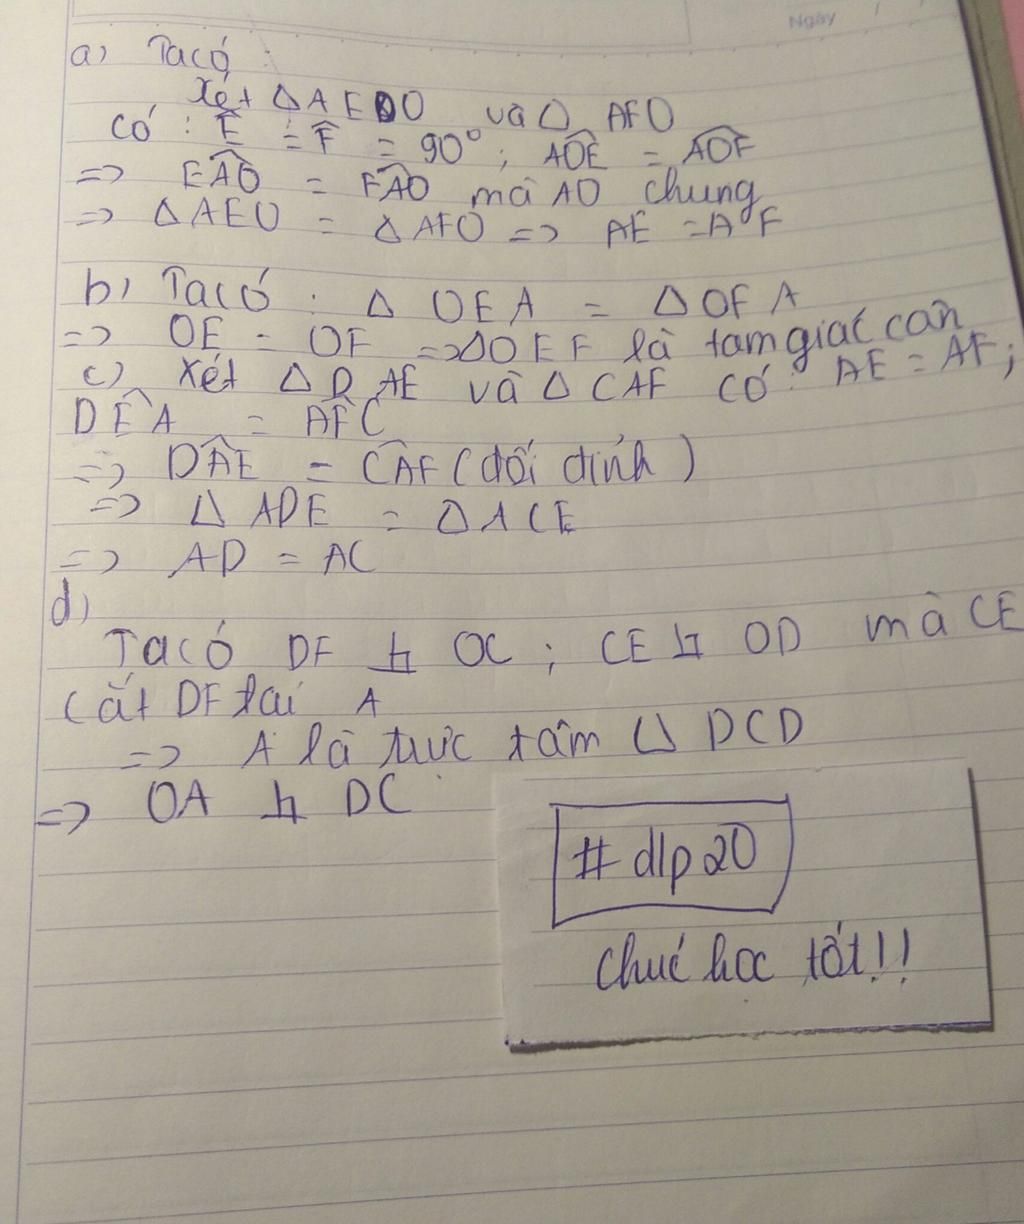 Ngày / /
a) Ta có :
Xét ΔAEDO và Δ AFO
Có : Ê = F̂ = 90° ; AÔE = AÔF
=> EÂO = FÂO mà AO chung
=> ΔAEO = ΔAFO => AE = AF
b) Ta có : Δ OEA = ΔOFA
=> OE = OF => ΔOEF là tam giác cân
c) Xét ΔDAE và ΔCAF có : AE = AF;
DÊA = AF̂C
=> DÂE = CÂF (đối đỉnh)
=> Δ ADE = ΔACE
=> AD = AC
d)
Ta có DF ⊥ OC ; CE ⊥ OD mà CE
cắt DF tại A
=> A là trực tâm Δ DCD
=> OA ⊥ DC
# dlp20
chúc học tốt!!